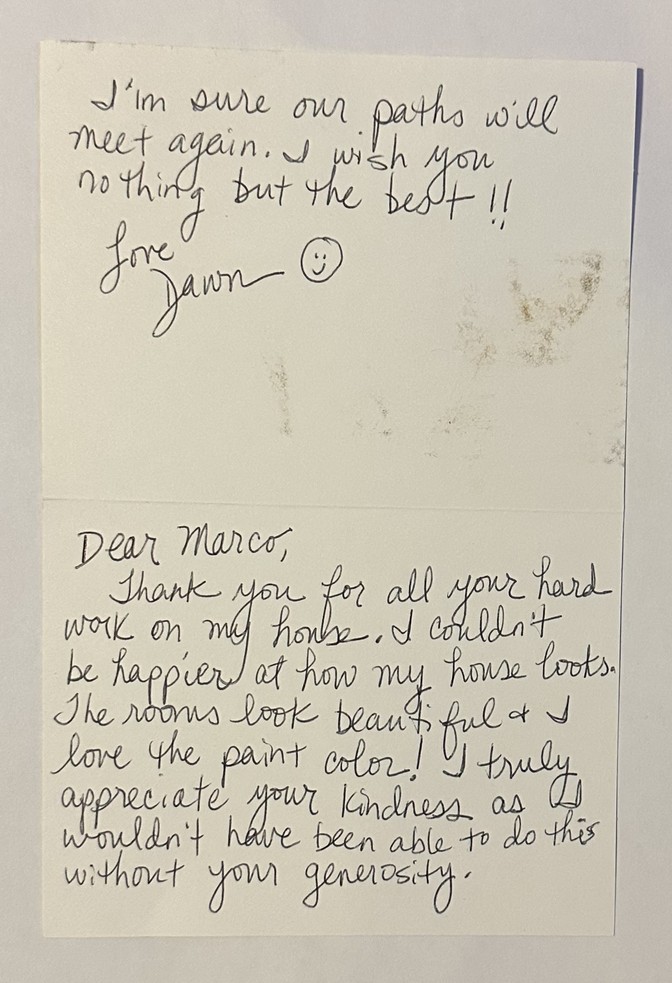 I'm sure our paths will
meet again. I wish you
nothing but the best!!
Love
Dawn
Dear Marco,
Thank you for all your hard
work on my house. I couldn't
be happier at how my house looks.
The rooms look beautiful & I
love the paint color! I truly
appreciate your kindness as I
wouldn't have been able to do this
without your generosity.